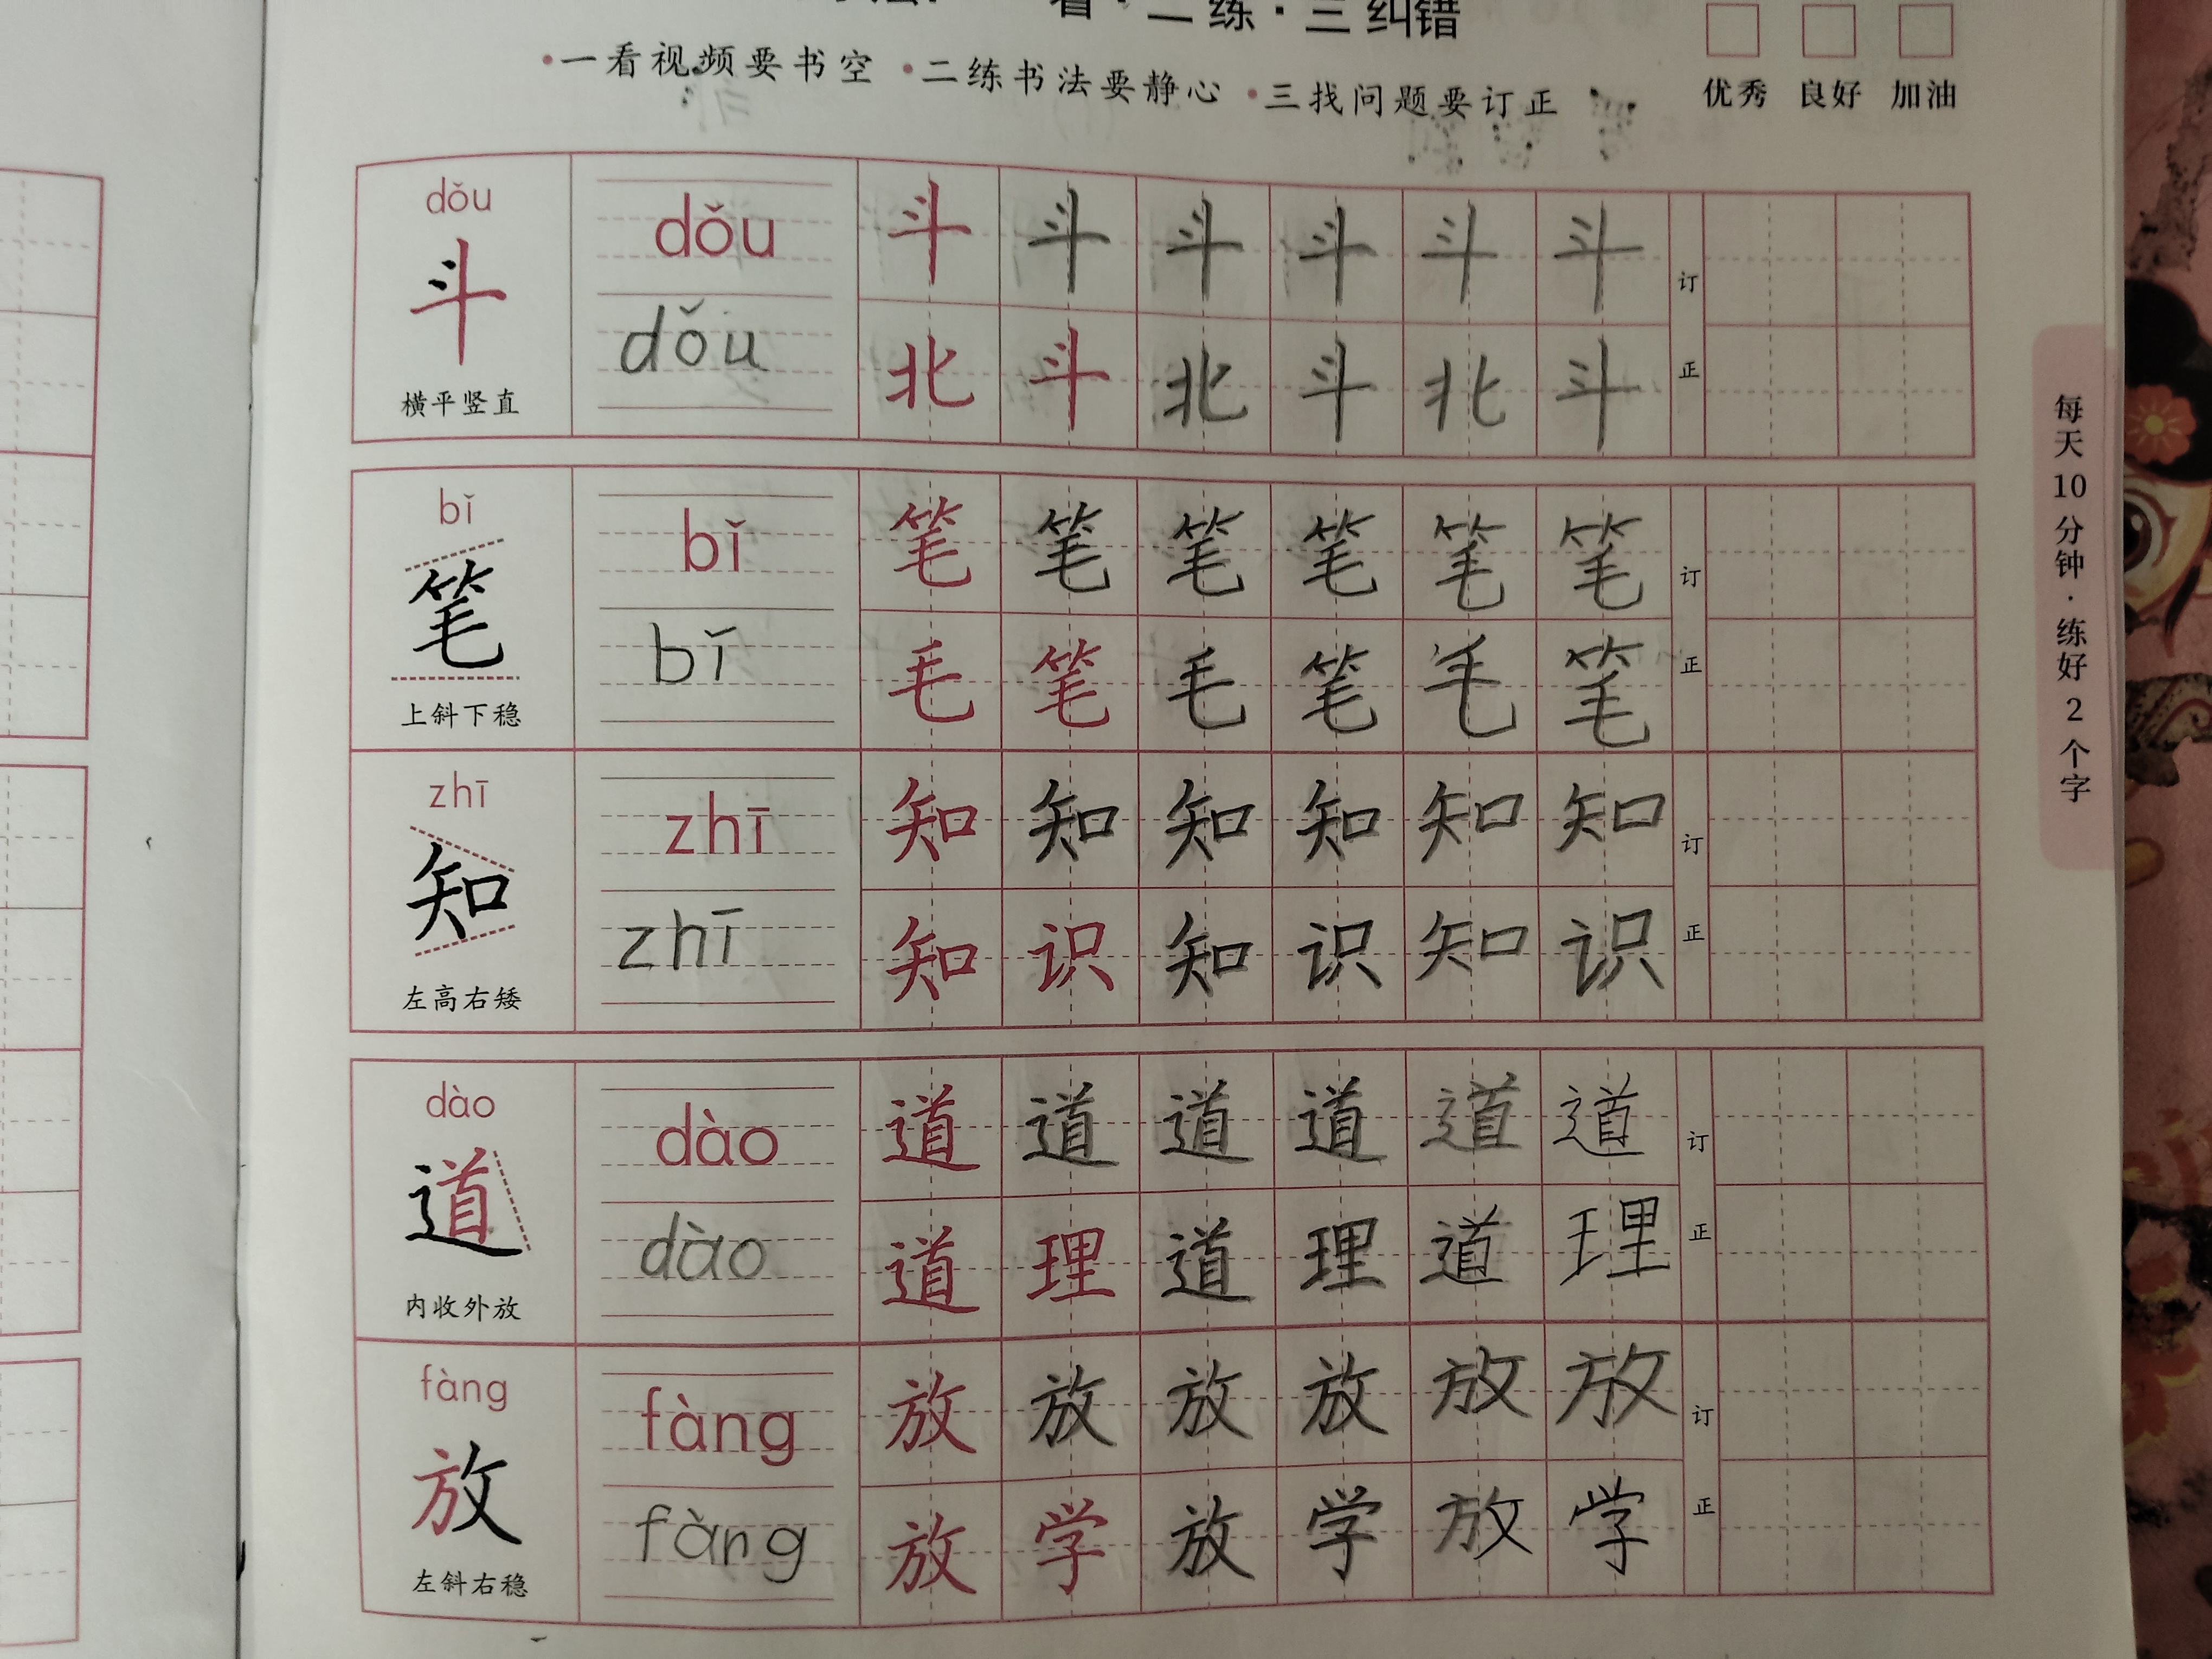 看·二练·三纠错
•一看视频要书空 •二练书法要静心 •三找问题要订正
优秀 良好 加油
dǒu dǒu 斗 斗 斗 斗 斗 斗 订
斗 dǒu 北 斗 北 斗 北 斗 正
横平竖直
bǐ bǐ 笔 笔 笔 笔 笔 笔 订
笔 bǐ 毛 笔 毛 笔 毛 笔 正
上斜下稳
zhī zhī 知 知 知 知 知 知 订
知 zhī 知 识 知 识 知 识 正
左高右矮
dào dào 道 道 道 道 道 道 订
道 dào 道 理 道 理 道 理 正
内收外放
fàng fàng 放 放 放 放 放 放 订
放 fàng 放 学 放 学 放 学 正
左斜右稳
每天10分钟·练好2个字